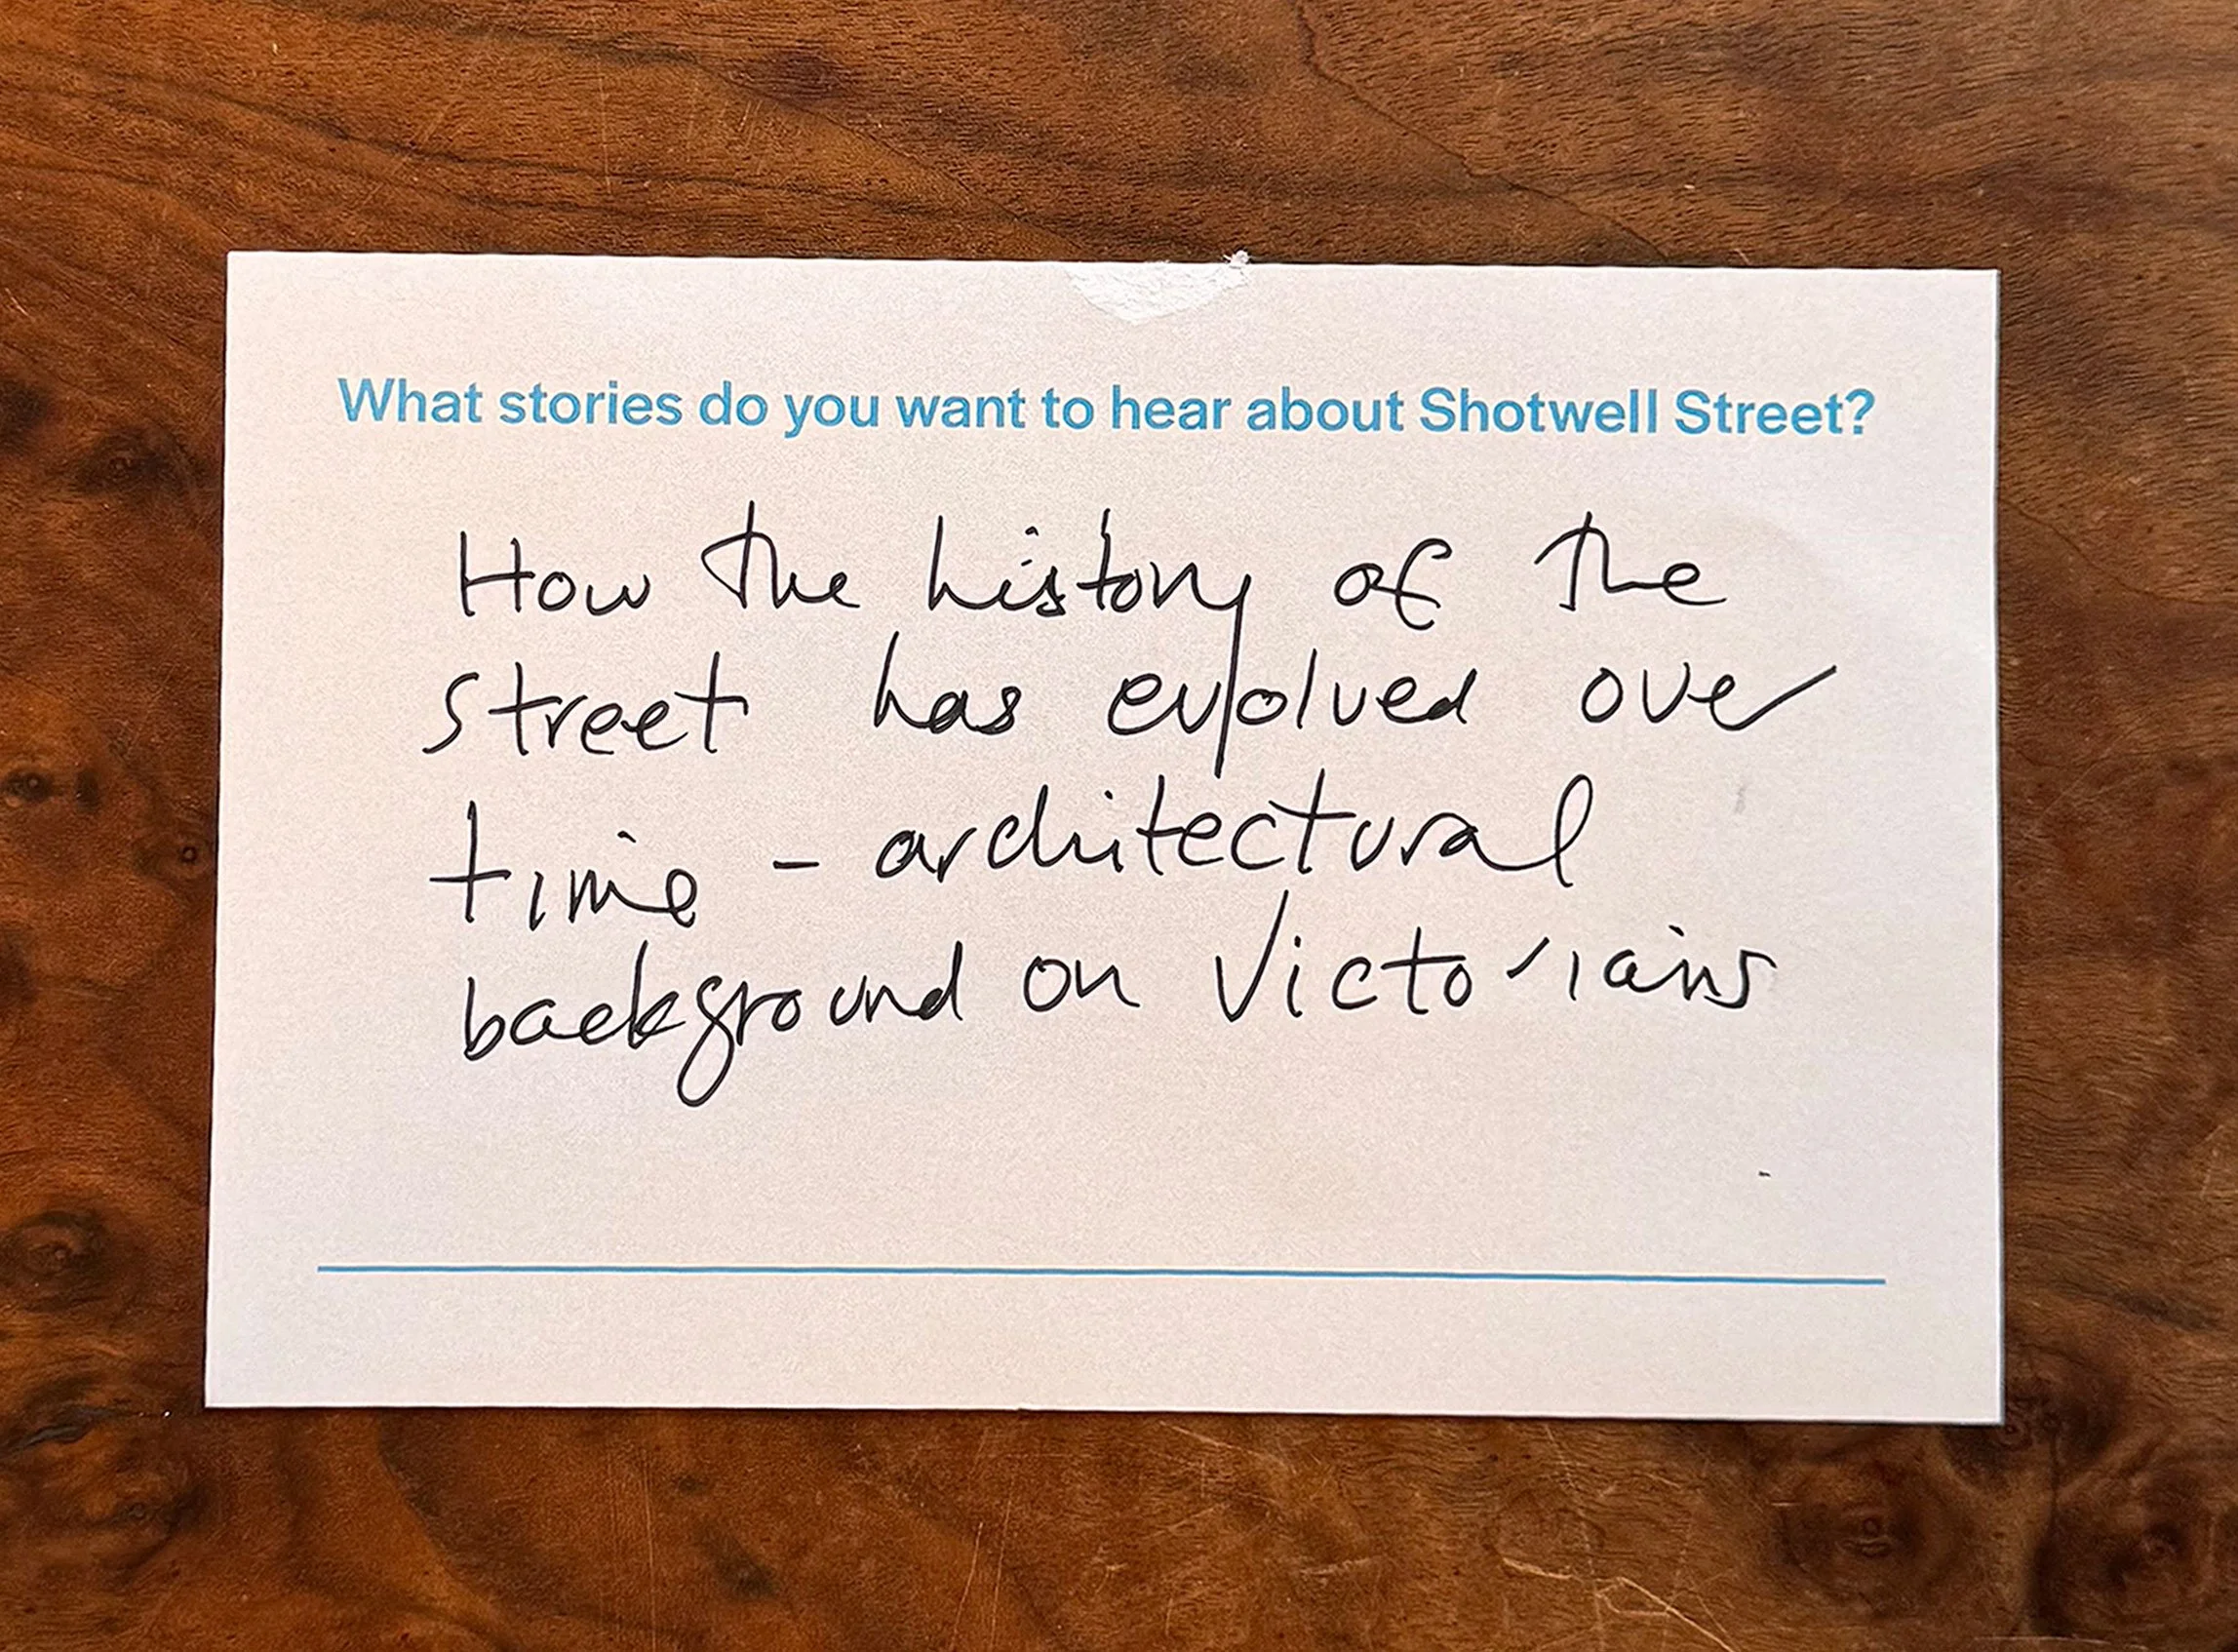 What stories do you want to hear about Shotwell Street?
How the history of the
street has evolved over
time - architectural
background on Victorians